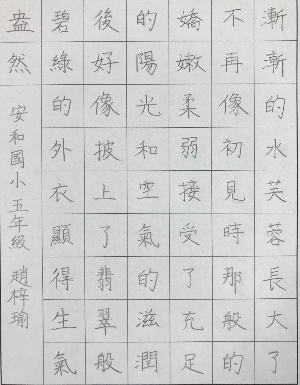 漸漸的水芙蓉長大了
不再像初見時那般的
嬌嫩柔弱接受了充足
的陽光和空氣的滋潤
後好像披上了翡翠般
碧綠的外衣顯得生氣
盎然
安和國小五年級 趙梓瑜